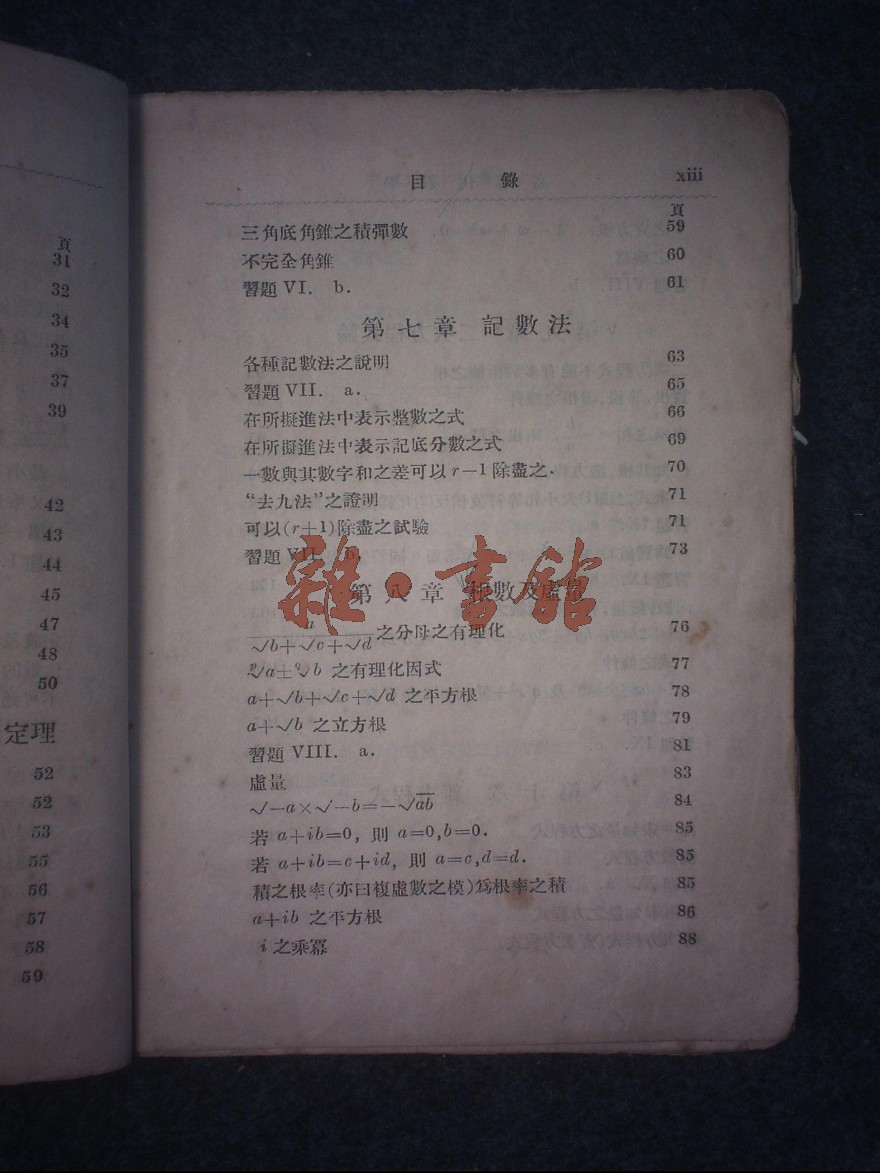 頁
31
32
34
35
37
39
42
43
44
45
47
48
50
定理
52
52
53
55
56
57
58
59
目 錄 xiii
頁
三角底角錐之積彈數 59
不完全角錐 60
習題 VI. b. 61
第七章 記數法
各種記數法之說明 63
習題 VII. a. 65
在所擬進法中表示整數之式 66
在所擬進法中表示記底分數之式 69
一數與其數字和之差可以 r−1 除盡之. 70
“去九法”之證明 71
可以(r+1)除盡之試驗 71
習題 VII. b. 73
第八章 根數及虛量
a/(√b+√c+√d) 之分母之有理化 76
之有理化因式 77
a+√b+√c+√d 之平方根 78
a+√b 之立方根 79
習題 VIII. a. 81
虛量 83
√−a×√−b=−√ab 84
若 a+ib=0, 則 a=0,b=0. 85
若 a+ib=c+id, 則 a=c,d=d. 85
積之根率(亦曰複虛數之模)爲根率之積 85
a+ib 之平方根 86
i 之乘冪 88
雜·書館